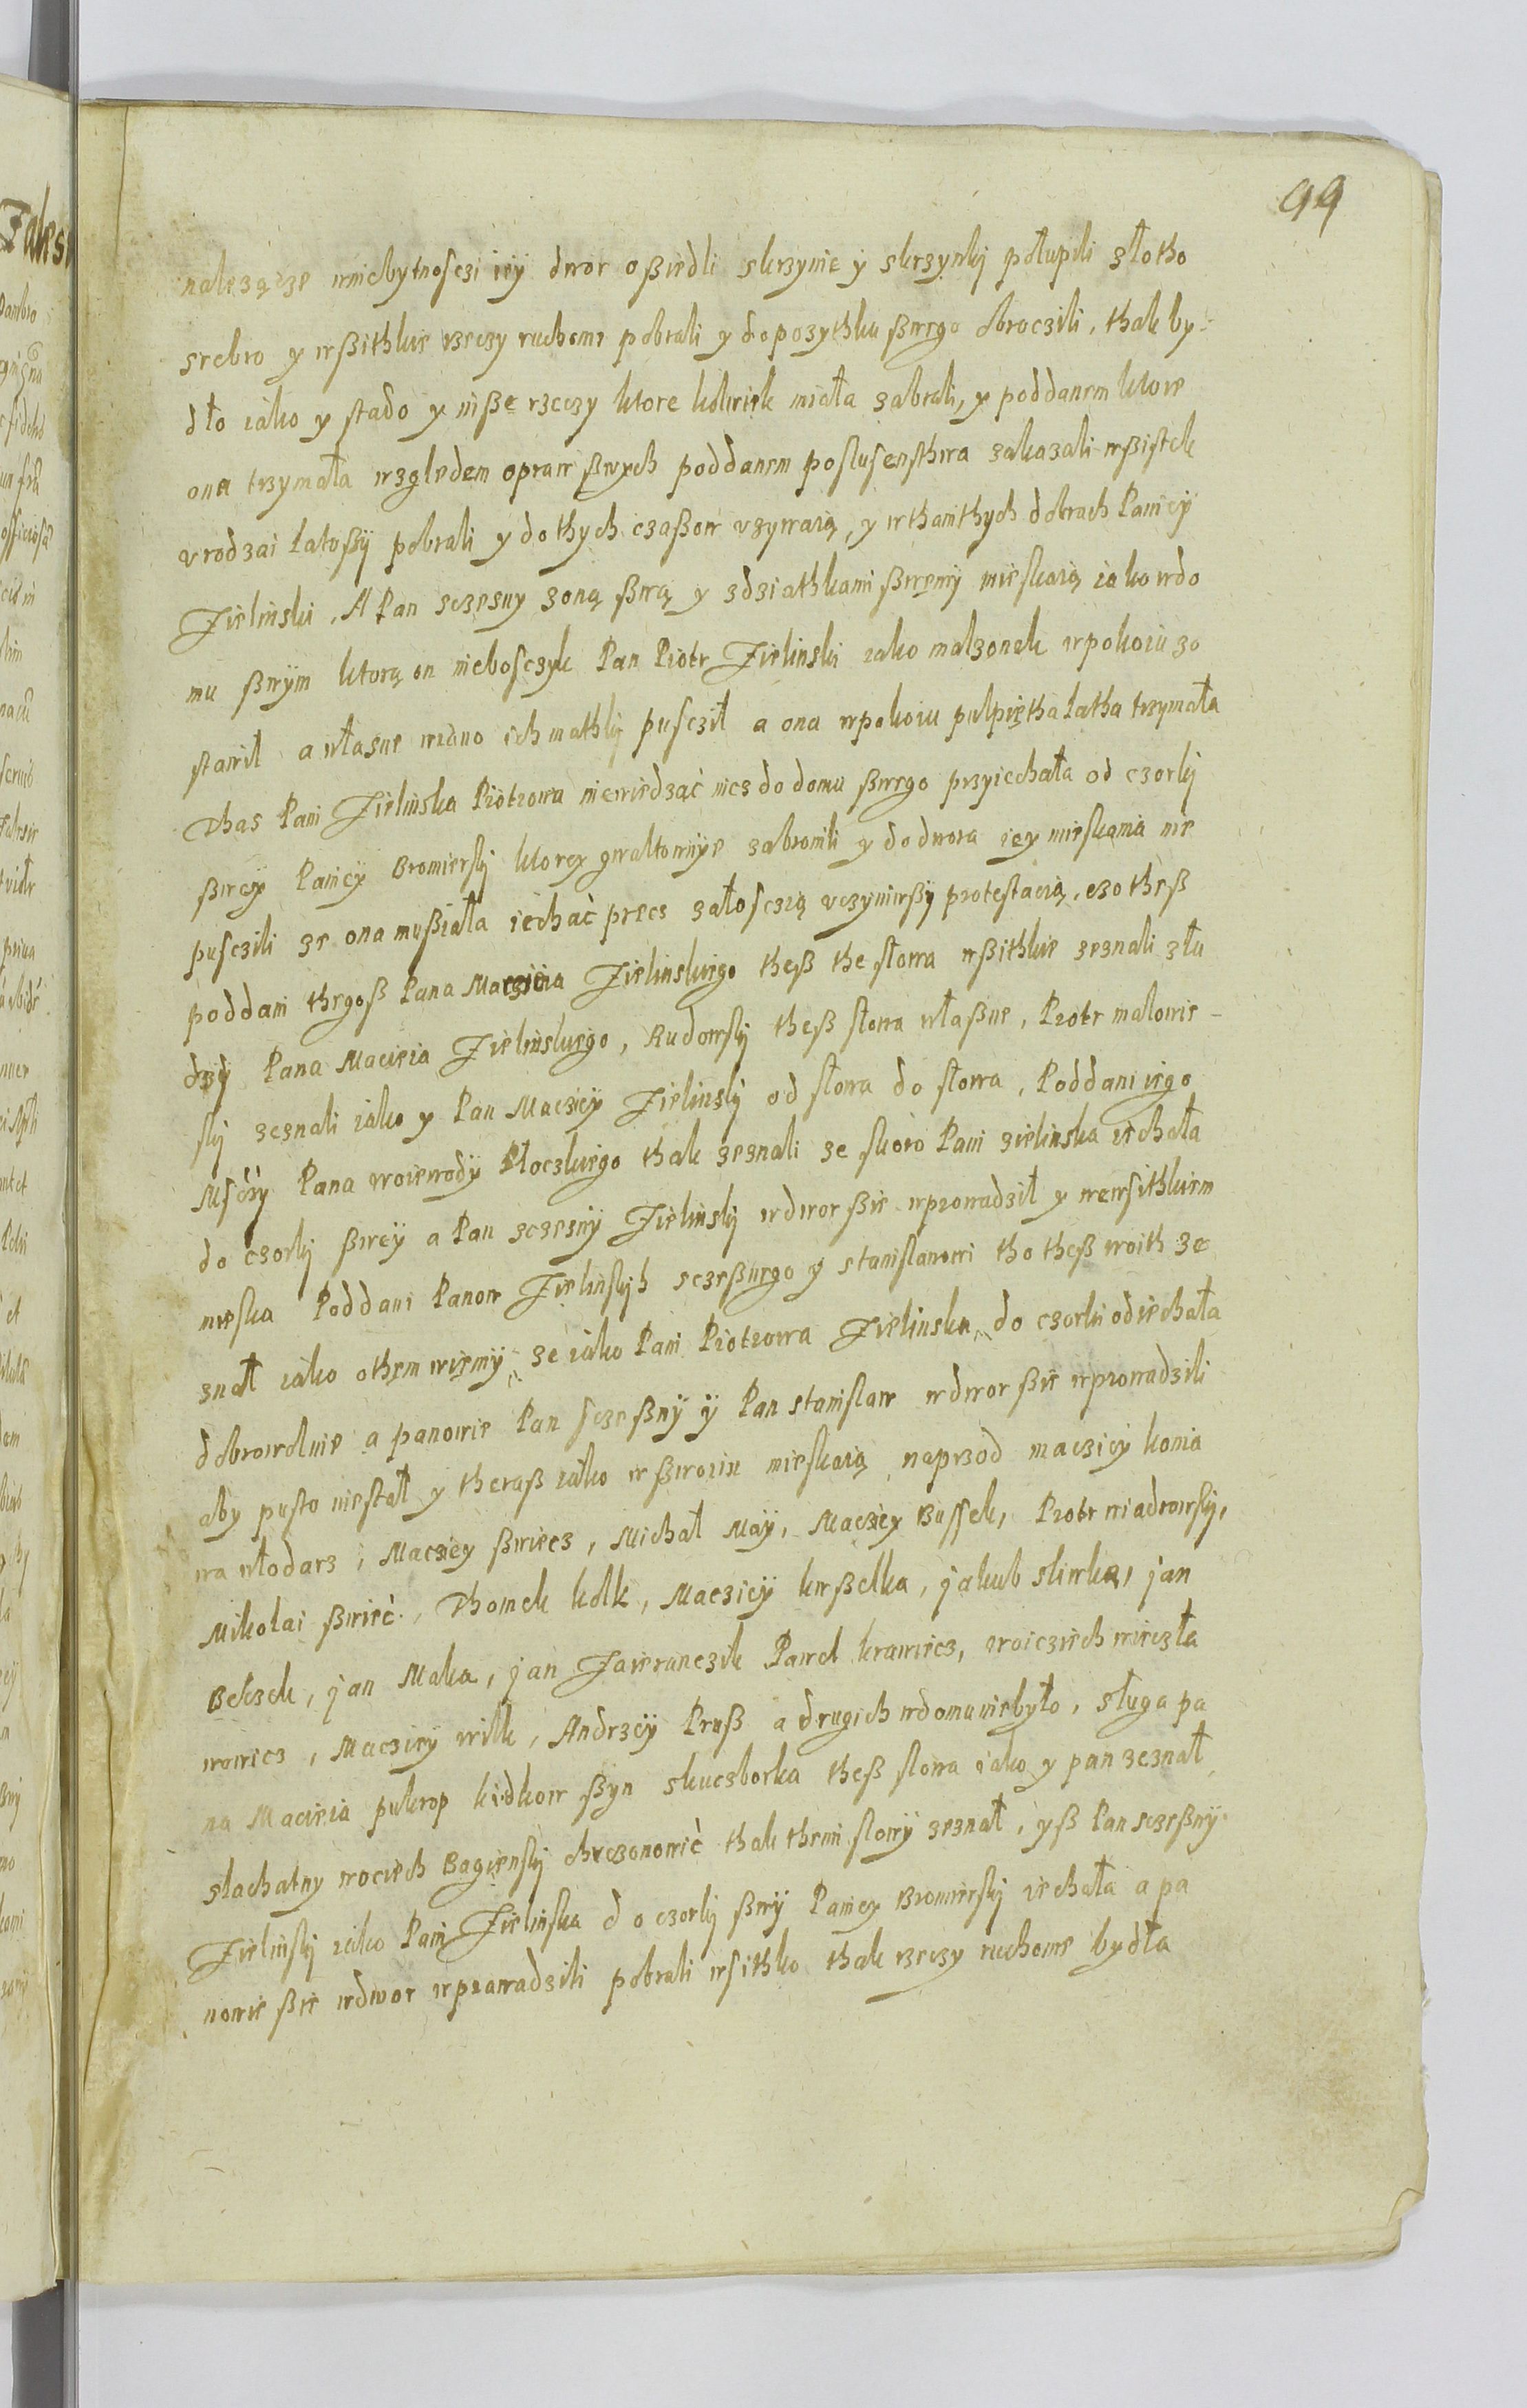 99
nalezącze wniebytnosczi iey dwor oßiedli skrzynie y skrzynky połupili złotho
srebro y wßithkie rzeczy ruchome pobrali y do pozythku ßwego obroczili, thak by-
dło iako y stado y niße rzeczy ktore kolwiek miała zabrali, y poddanem ktore
ona trzymała wzgledem opraw ßwych poddanem poslusensthwa zakazali wßistek
vrodzai latoßÿ pobrali y do thych czaßow vzywaią, y wthamthych dobrach Paniey
Zielinski, A Pan sczesny zoną ßwą y zdziathkami ßwemÿ mieskaią iako wdo
mu ßwÿm ktorą on nieboscyk Pan Piotr Zielinski iako malzonek wpokoiu zo
stawił a własne wiano ich mathky puscził a ona wpokoiu pulpiętha latha trzymała
Thas Pani Zielinska Piotrowa niewiedząc nicz do domu ßwego przyiechała od czorky
ßwey Paniey Bromiersky ktorey gwaltownÿe zabronili y do dwora iey mieskania nie
pusczili ze ona mußiała iechać precz załosczią vczyniwßy protestacią, czo theß
poddani thegoß Pana Maczieia Zielinskiego theß the słowa wßithkie zeznali złu
dzÿ Pana Macieia Zielinskiego, Rudowsky theß słowa własne, Piotr malowie-
sky zeznali iako y Pan Macziey Zielinsky od słowa do słowa, Poddani iego
Msczy Pana woiewodÿ Płoczkiego thak zeznali ze skoro Pani zielinska iechała
do czorky ßweÿ a Pan sczesnÿ Zielinsky wdwor ßie wprowadził y wewsithkiem
mieska Poddani Panow Zielinskÿh sczeßnego y stanislawowi tho theß woith ze
znał iako othem wiemÿ, ze iako Pani Piotrowa Zielinska do czorki odiechała
dobrowolnie a panowie Pan sczeßnÿ ÿ Pan stanislaw wdwor ßie wprowadzili
aby pusto niestał y theraß iako w ßwoim mieskaią, naprzod macziey konia
wa włodarz, Macziey ßwiecz, Michał Maÿ, Macziey Bussek, Piotr wiadrowsky,
Mikolai ßwieć, Thomek kołk, Maczieÿ kußelka, jakub sliwka, jan
Bekzek, jan Maka, jan Zaieranczik Pawel krawiecz, woicziech wieczła
wowicz, Macziey wilk, Andrzeÿ Pruß a drugich wdomu niebyło, sługa pa
na Macieia pukrop kidkow ßyn skuczborka theß słowa iako y pan zeznał,
slachatny wociech Bagiensky chrzonowić thak themi słowÿ zeznał, yß Pan sczeßnÿ
Zielinsky iako Pani Zielinska do czorky ßwÿ Paniey Bromiersky iechała a pa
nowie ßie wdwor wprowadzili pobrali wsithko thak rzeczy ruchome bydła